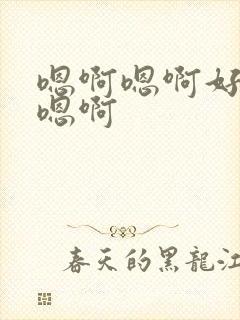 嗯啊嗯啊好
嗯啊
春天的黑龍江